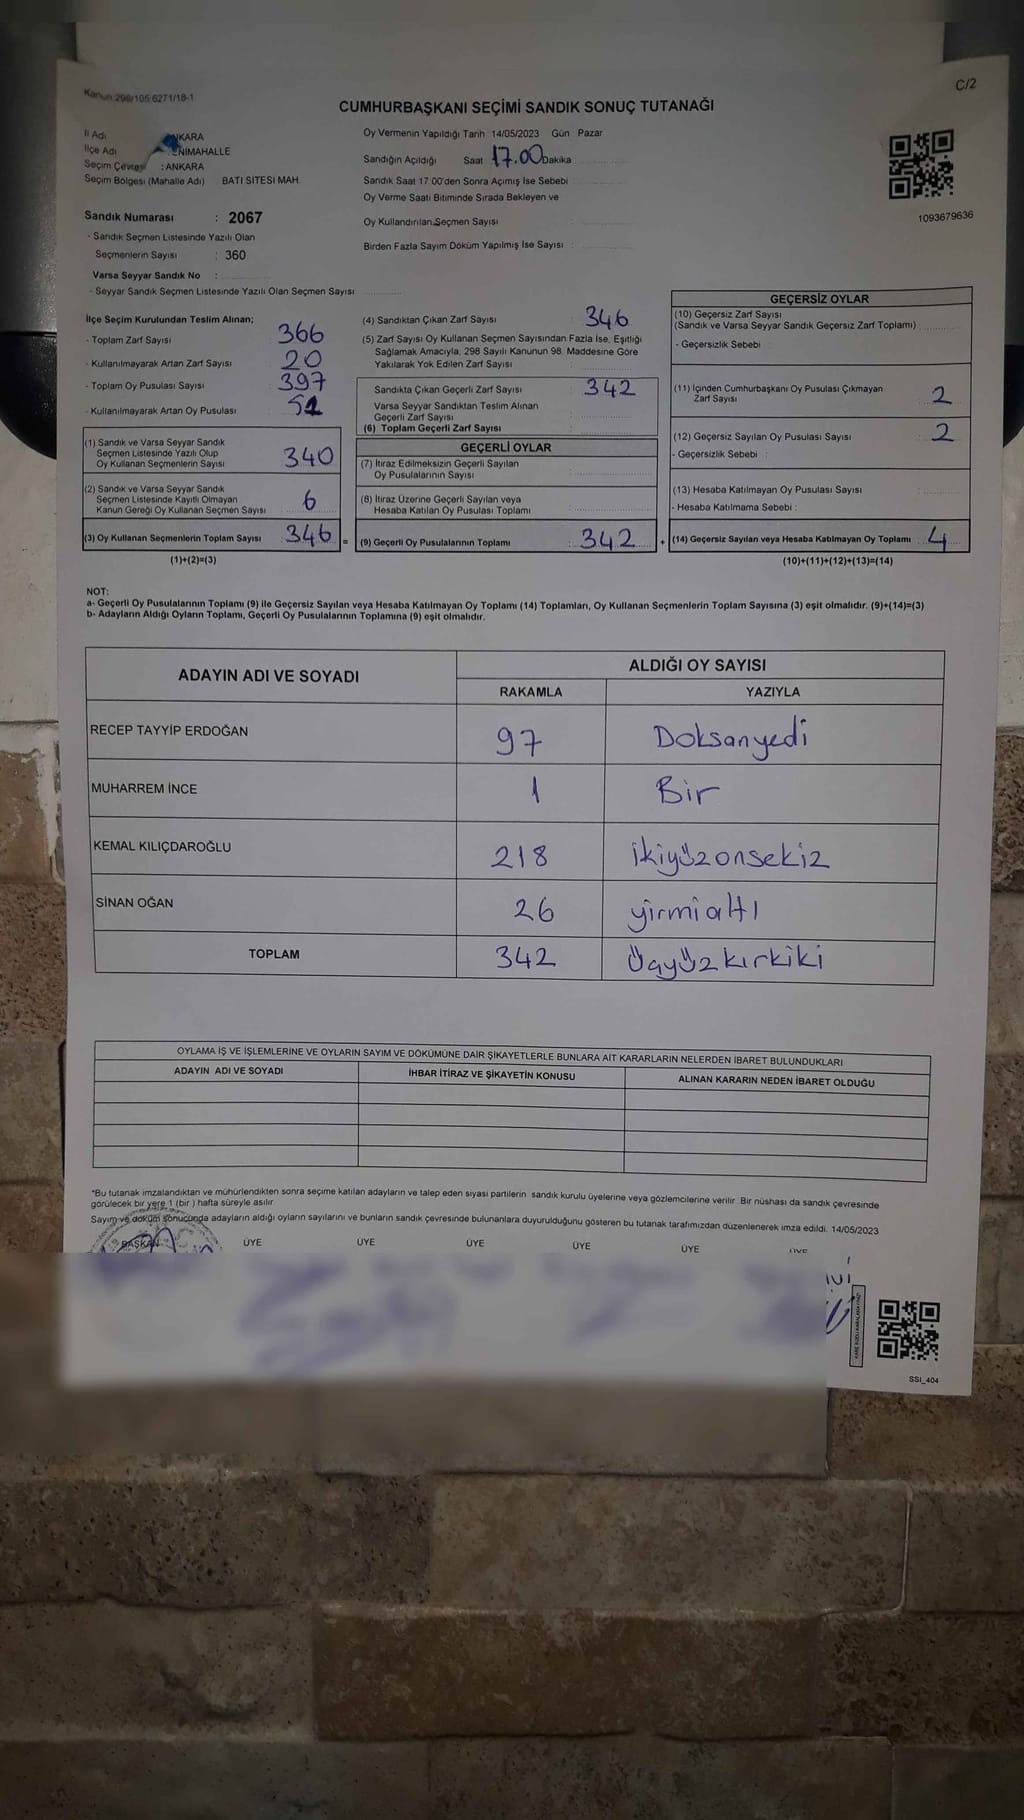 Kanun:298/105;6271/18-1
C/2
CUMHURBAŞKANI SEÇİMİ SANDIK SONUÇ TUTANAĞI
İl Adı NKARA
İlçe Adı ENİMAHALLE
Seçim Çevresi : ANKARA
Seçim Bölgesi (Mahalle Adı) BATI SİTESİ MAH.
Oy Vermenin Yapıldığı Tarih :14/05/2023 Gün Pazar
Sandığın Açıldığı Saat 17.00 Dakika
Sandık Saat 17.00'den Sonra Açımış İse Sebebi :
Oy Verme Saati Bitiminde Sırada Bekleyen ve
Oy Kullandırılan Seçmen Sayısı :
Birden Fazla Sayım Döküm Yapılmış İse Sayısı :
1093679636
Sandık Numarası : 2067
- Sandık Seçmen Listesinde Yazılı Olan
Seçmenlerin Sayısı : 360
Varsa Seyyar Sandık No :
- Seyyar Sandık Seçmen Listesinde Yazılı Olan Seçmen Sayısı
İlçe Seçim Kurulundan Teslim Alınan;
- Toplam Zarf Sayısı 366
- Kullanılmayarak Artan Zarf Sayısı 20
- Toplam Oy Pusulası Sayısı 397
- Kullanılmayarak Artan Oy Pusulası
(1) Sandık ve Varsa Seyyar Sandık
Seçmen Listesinde Yazılı Olup
Oy Kullanan Seçmenlerin Sayısı 340
(2) Sandık ve Varsa Seyyar Sandık
Seçmen Listesinde Kayıtlı Olmayan
Kanun Gereği Oy Kullanan Seçmen Sayısı 6
(3) Oy Kullanan Seçmenlerin Toplam Sayısı 346 =
(1)+(2)=(3)
(4) Sandıktan Çıkan Zarf Sayısı : 346
(5) Zarf Sayısı Oy Kullanan Seçmen Sayısından Fazla İse, Eşitliği
Sağlamak Amacıyla, 298 Sayılı Kanunun 98. Maddesine Göre
Yakılarak Yok Edilen Zarf Sayısı :
Sandıkta Çıkan Geçerli Zarf Sayısı : 342
Varsa Seyyar Sandıktan Teslim Alınan
Geçerli Zarf Sayısı
(6) Toplam Geçerli Zarf Sayısı
GEÇERLİ OYLAR
(7) İtiraz Edilmeksizin Geçerli Sayılan
Oy Pusulalarının Sayısı
(8) İtiraz Üzerine Geçerli Sayılan veya
Hesaba Katılan Oy Pusulası Toplamı
(9) Geçerli Oy Pusulalarının Toplamı : 342 +
GEÇERSİZ OYLAR
(10) Geçersiz Zarf Sayısı
(Sandık ve Varsa Seyyar Sandık Geçersiz Zarf Toplamı) :
- Geçersizlik Sebebi :
(11) İçinden Cumhurbaşkanı Oy Pusulası Çıkmayan
Zarf Sayısı : 2
(12) Geçersiz Sayılan Oy Pusulası Sayısı : 2
- Geçersizlik Sebebi :
(13) Hesaba Katılmayan Oy Pusulası Sayısı :
- Hesaba Katılmama Sebebi :
(14) Geçersiz Sayılan veya Hesaba Katılmayan Oy Toplamı : 4
(10)+(11)+(12)+(13)=(14)
NOT:
a- Geçerli Oy Pusulalarının Toplamı (9) ile Geçersiz Sayılan veya Hesaba Katılmayan Oy Toplamı (14) Toplamları, Oy Kullanan Seçmenlerin Toplam Sayısına (3) eşit olmalıdır. (9)+(14)=(3)
b- Adayların Aldığı Oyların Toplamı, Geçerli Oy Pusulalarının Toplamına (9) eşit olmalıdır.
ADAYIN ADI VE SOYADI
ALDIĞI OY SAYISI
RAKAMLA YAZIYLA
RECEP TAYYİP ERDOĞAN 97 Doksanyedi
MUHARREM İNCE 1 Bir
KEMAL KILIÇDAROĞLU 218 İkiyüzonsekiz
SİNAN OĞAN 26 yirmialtı
TOPLAM 342 Üçyüzkırkiki
OYLAMA İŞ VE İŞLEMLERİNE VE OYLARIN SAYIM VE DÖKÜMÜNE DAİR ŞİKAYETLERLE BUNLARA AİT KARARLARIN NELERDEN İBARET BULUNDUKLARI
ADAYIN ADI VE SOYADI İHBAR İTİRAZ VE ŞİKAYETİN KONUSU ALINAN KARARIN NEDEN İBARET OLDUĞU
*Bu tutanak imzalandıktan ve mühürlendikten sonra seçime katılan adayların ve talep eden siyasi partilerin sandık kurulu üyelerine veya gözlemcilerine verilir. Bir nüshası da sandık çevresinde
görülecek bir yere 1 (bir ) hafta süreyle asılır.
Sayım ve döküm sonucunda adayların aldığı oyların sayılarını ve bunların sandık çevresinde bulunanlara duyurulduğunu gösteren bu tutanak tarafımızdan düzenlenerek imza edildi. 14/05/2023
BAŞKAN ÜYE ÜYE ÜYE ÜYE ÜYE ÜYE
SSI_404